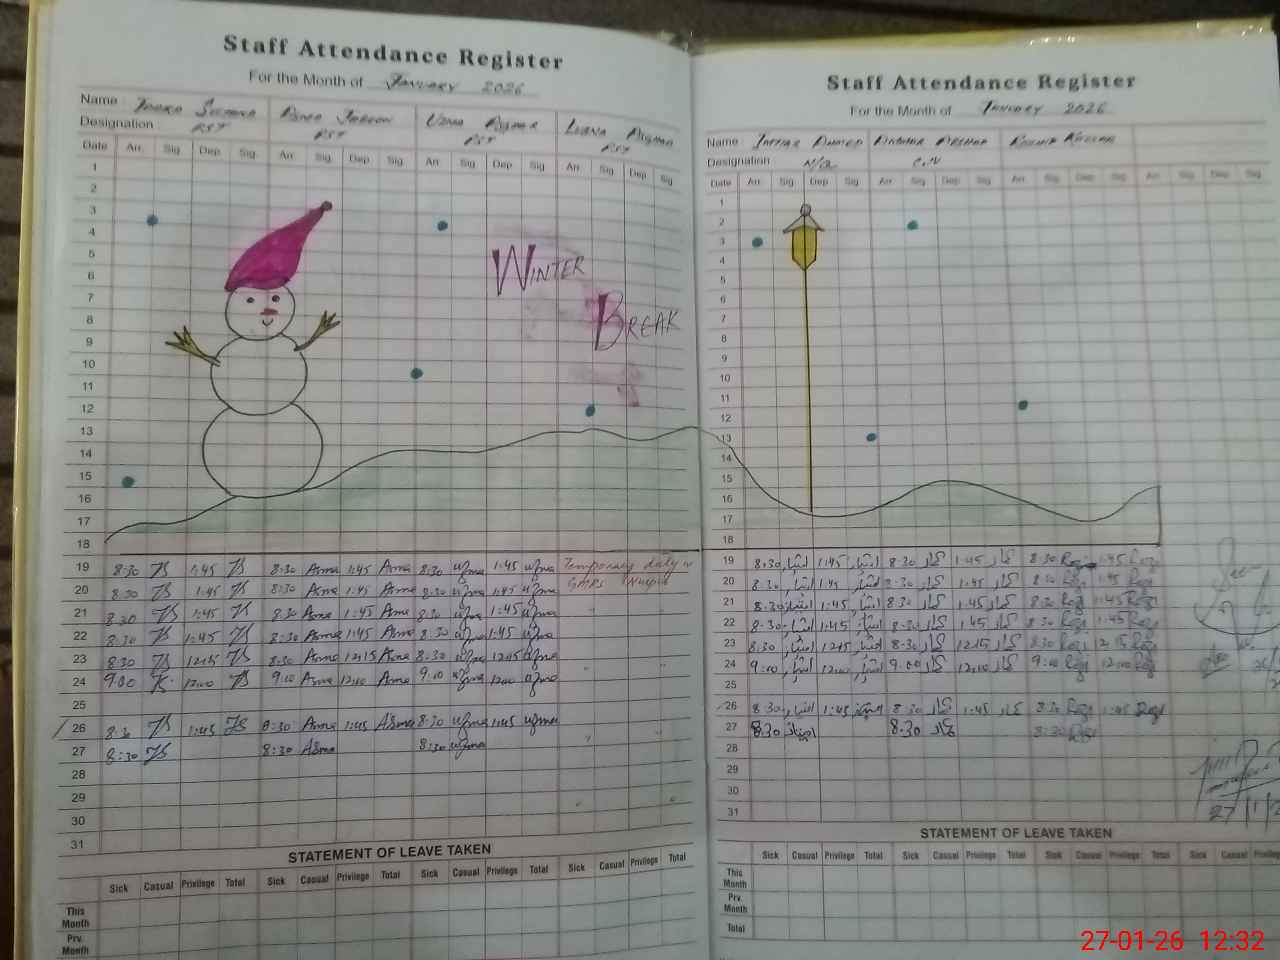 Staff Attendance Register
For the Month of January 2026
Name
Designation PST PST PST PST
Date Arr. Sig. Dep. Sig. Arr. Sig. Dep. Sig. Arr. Sig. Dep Sig. Arr. Sig. Dep. Sig.
1
2
3
4
5
WINTER
6
7
8
BREAK
9
10
11
12
13
14
15
16
17
18
19 8:30 TS 1:45 TS 8:30 Asma 1:45 Asma 8:30 uzma 1:45 uzma Temporary duty
20 8:30 TS 1:45 TS 8:30 Asma 1:45 Asma 8:30 uzma 1:45 uzma
21 8:30 TS 1:45 TS 8:30 Asma 1:45 Asma 8:30 uzma 1:45 uzma "
22 8:30 TS 1:45 TS 8:30 Asma 1:45 Asma 8:30 uzma 1:45 uzma
23 8:30 TS 12:15 TS 8:30 Asma 12:15 Asma 8:30 uzma 12:15 uzma
24 9:00 TS 12:00 TS 9:00 Asma 12:00 Asma 9:00 uzma 12:00 uzma " "
25
26 8:30 TS 1:45 TS 8:30 Asma 1:45 Asma 8:30 uzma 1:45 uzma
27 8:30 TS 8:30 Asma 8:30 uzma " "
28
29
30 " "
31
STATEMENT OF LEAVE TAKEN
Sick Casual Privilege Total Sick Casual Privilege Total Sick Casual Privilege Total Sick Casual Privilege Total
This Month
Prv. Month
Staff Attendance Register
For the Month of January 2026
Name Imtiaz Ahmed
Designation N/Q
Date Arr. Sig. Dep. Sig. Arr. Sig. Dep. Sig. Arr. Sig. Dep. Sig. Arr. Sig. Dep. Sig.
1
2
3
4
5
6
7
8
9
10
11
12
13
14
15
16
17
18
19 8:30 امتیاز 1:45 امتیاز 8:30 1:45 8:30 1:45
20 8:30 امتیاز 1:45 امتیاز 8:30 1:45 8:30 1:45
21 8:30 امتیاز 1:45 امتیاز 8:30 1:45 8:30 1:45
22 8:30 امتیاز 1:45 امتیاز 8:30 1:45 8:30 1:45
23 8:30 امتیاز 12:15 امتیاز 8:30 12:15 8:30 12:15
24 9:00 امتیاز 12:00 امتیاز 9:00 12:00 9:00 12:00
25
26 8:30 امتیاز 1:45 امتیاز 8:30 1:45 8:30 1:45
27 8:30 امتیاز 8:30 8:30
28
29
30
31
27/1/
STATEMENT OF LEAVE TAKEN
Sick Casual Privilege Total Sick Casual Privilege Total Sick Casual Privilege Total Sick Casual Privilege
This Month
Prv. Month
Total
27-01-26 12:32